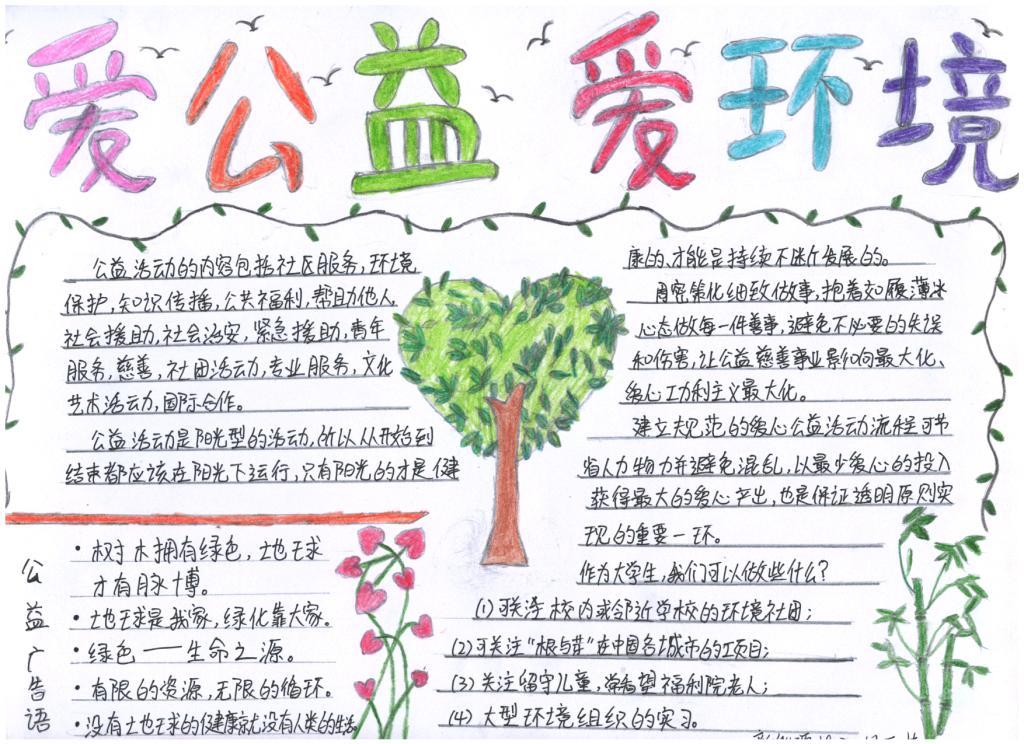 爱公益 爱环境
公益活动的内容包括社区服务,环境
保护,知识传播,公共福利,帮助他人
社会援助,社会治安,紧急援助,青年
服务,慈善,社团活动,专业服务,文化
艺术活动,国际合作。
公益活动是阳光型的活动,所以从开始到
结束都应该在阳光下运行,只有阳光的才是健
康的,才能是持续不断发展的。
周密策化细致做事,抱着如履薄冰
心态做每一件善事,避免不必要的失误
和伤害,让公益慈善事业影响最大化、
爱心功利主义最大化。
建立规范的爱心公益活动流程可节
省人力物力并避免混乱,以最少爱心的投入
获得最大的爱心产出,也是保证透明原则实
现的重要一环。
作为大学生,我们可以做些什么?
(1)可关注校内或邻近学校的环境社团;
(2)可关注"根与芽"在中国各城市的项目;
(3)关注留守儿童,常看望福利院老人;
(4)大型环境组织的实习。
公益广告语
·树木拥有绿色,地球
才有脉搏。
·地球是我家,绿化靠大家。
·绿色——生命之源。
·有限的资源,无限的循环。
·没有地球的健康就没有人类的生活